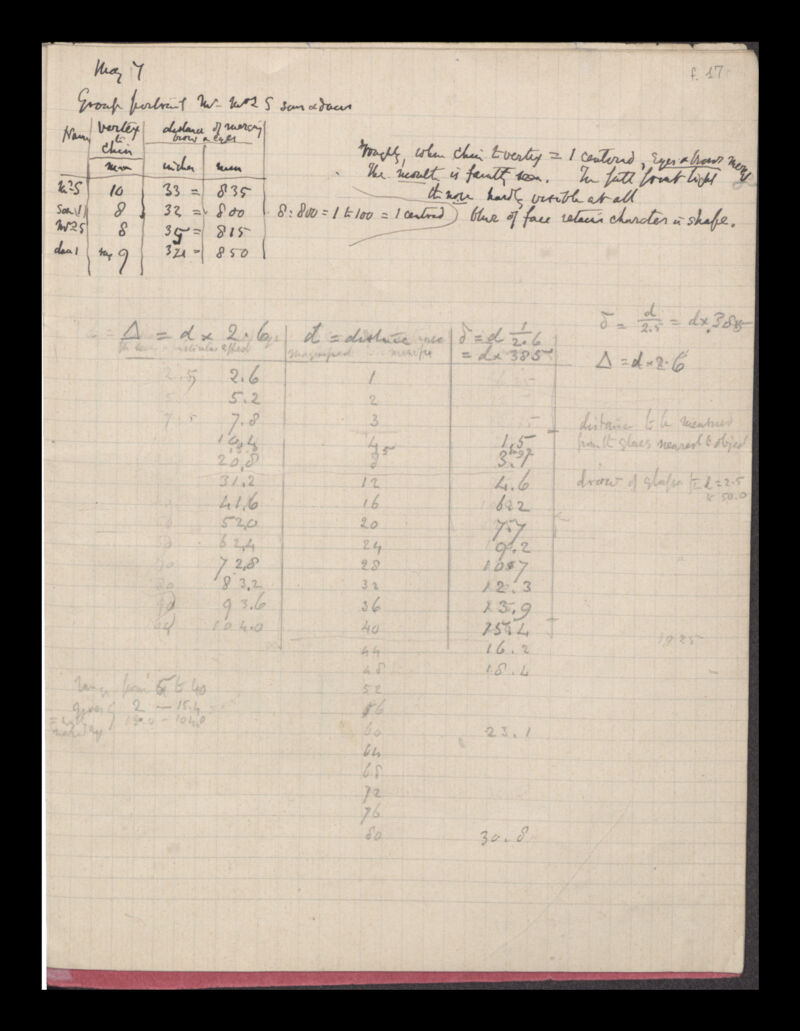 May 7
f. 17
Group portrait Mr - Mrs S sons & daus
Name | vertex to chin | distance of merging brows & eyes
mm | inches | mm
Mr S | 10 | 33 = | 835
son 1 | 8 | 32 = | 800
Mrs S | 8 | 35 = | 815
dau 1 | say 9 | = | 850
Roughly, when chin to vertex = 1 centrad, Eyes & brows merge
The mouth is faintly seen. In full front light
the nose hardly visible at all
8 : 800 = 1 to 100 = 1 centrad
of face retains character in shape.
Δ = d × 2.6 | d = distance | δ = d 1/2.6
= d × 385
δ = d/2.5 = d × .385
Δ = d × 2.6
2.5 2.6 | 1
5.2 | 2
7.5 7.8 | 3
10.4 | 4 | 1.5
20.8 | 8 | 3.7
31.2 | 12 | 4.6
41.6 | 16 | 6.2
52.0 | 20 | 7.7
62.4 | 24 | 9.2
72.8 | 28 | 10.7
83.2 | 32 | 12.3
93.6 | 36 | 13.9
104.0 | 40 | 15.4
44 | 16.2
48 | 18.4
52
56
60 | 23.1
64
68
72
76
80 | 30.8
distance to be measured
from the glass nearest to object
d = 2.5
to 50.0
1925
range from 5 to 40
gives 2 — 15.4
— 104.0